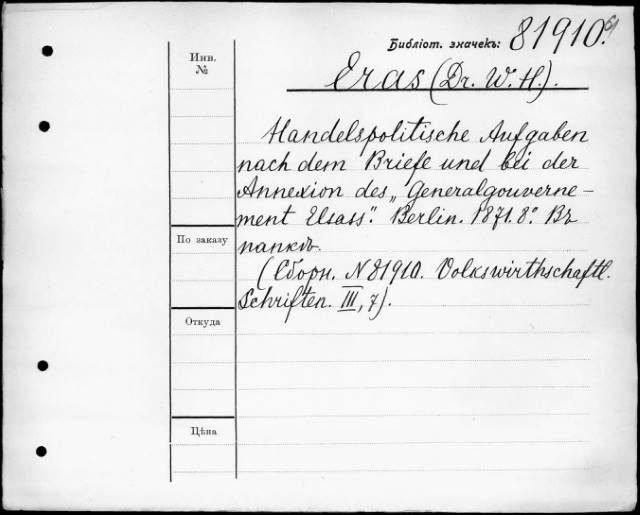 Библіот. значекъ: 81910.61
Инв.
№
Eras (Dr. W. H.).
Handelspolitische Aufgaben
nach dem Briefe und bei der
Annexion des „Generalgouverne-
ment Elsass“. Berlin. 1871. 8°. Въ
папкѣ.
По заказу
(Сборн. N 81910. Volkswirthschaftl.
Schriften. III, 7).
Откуда
Цѣна